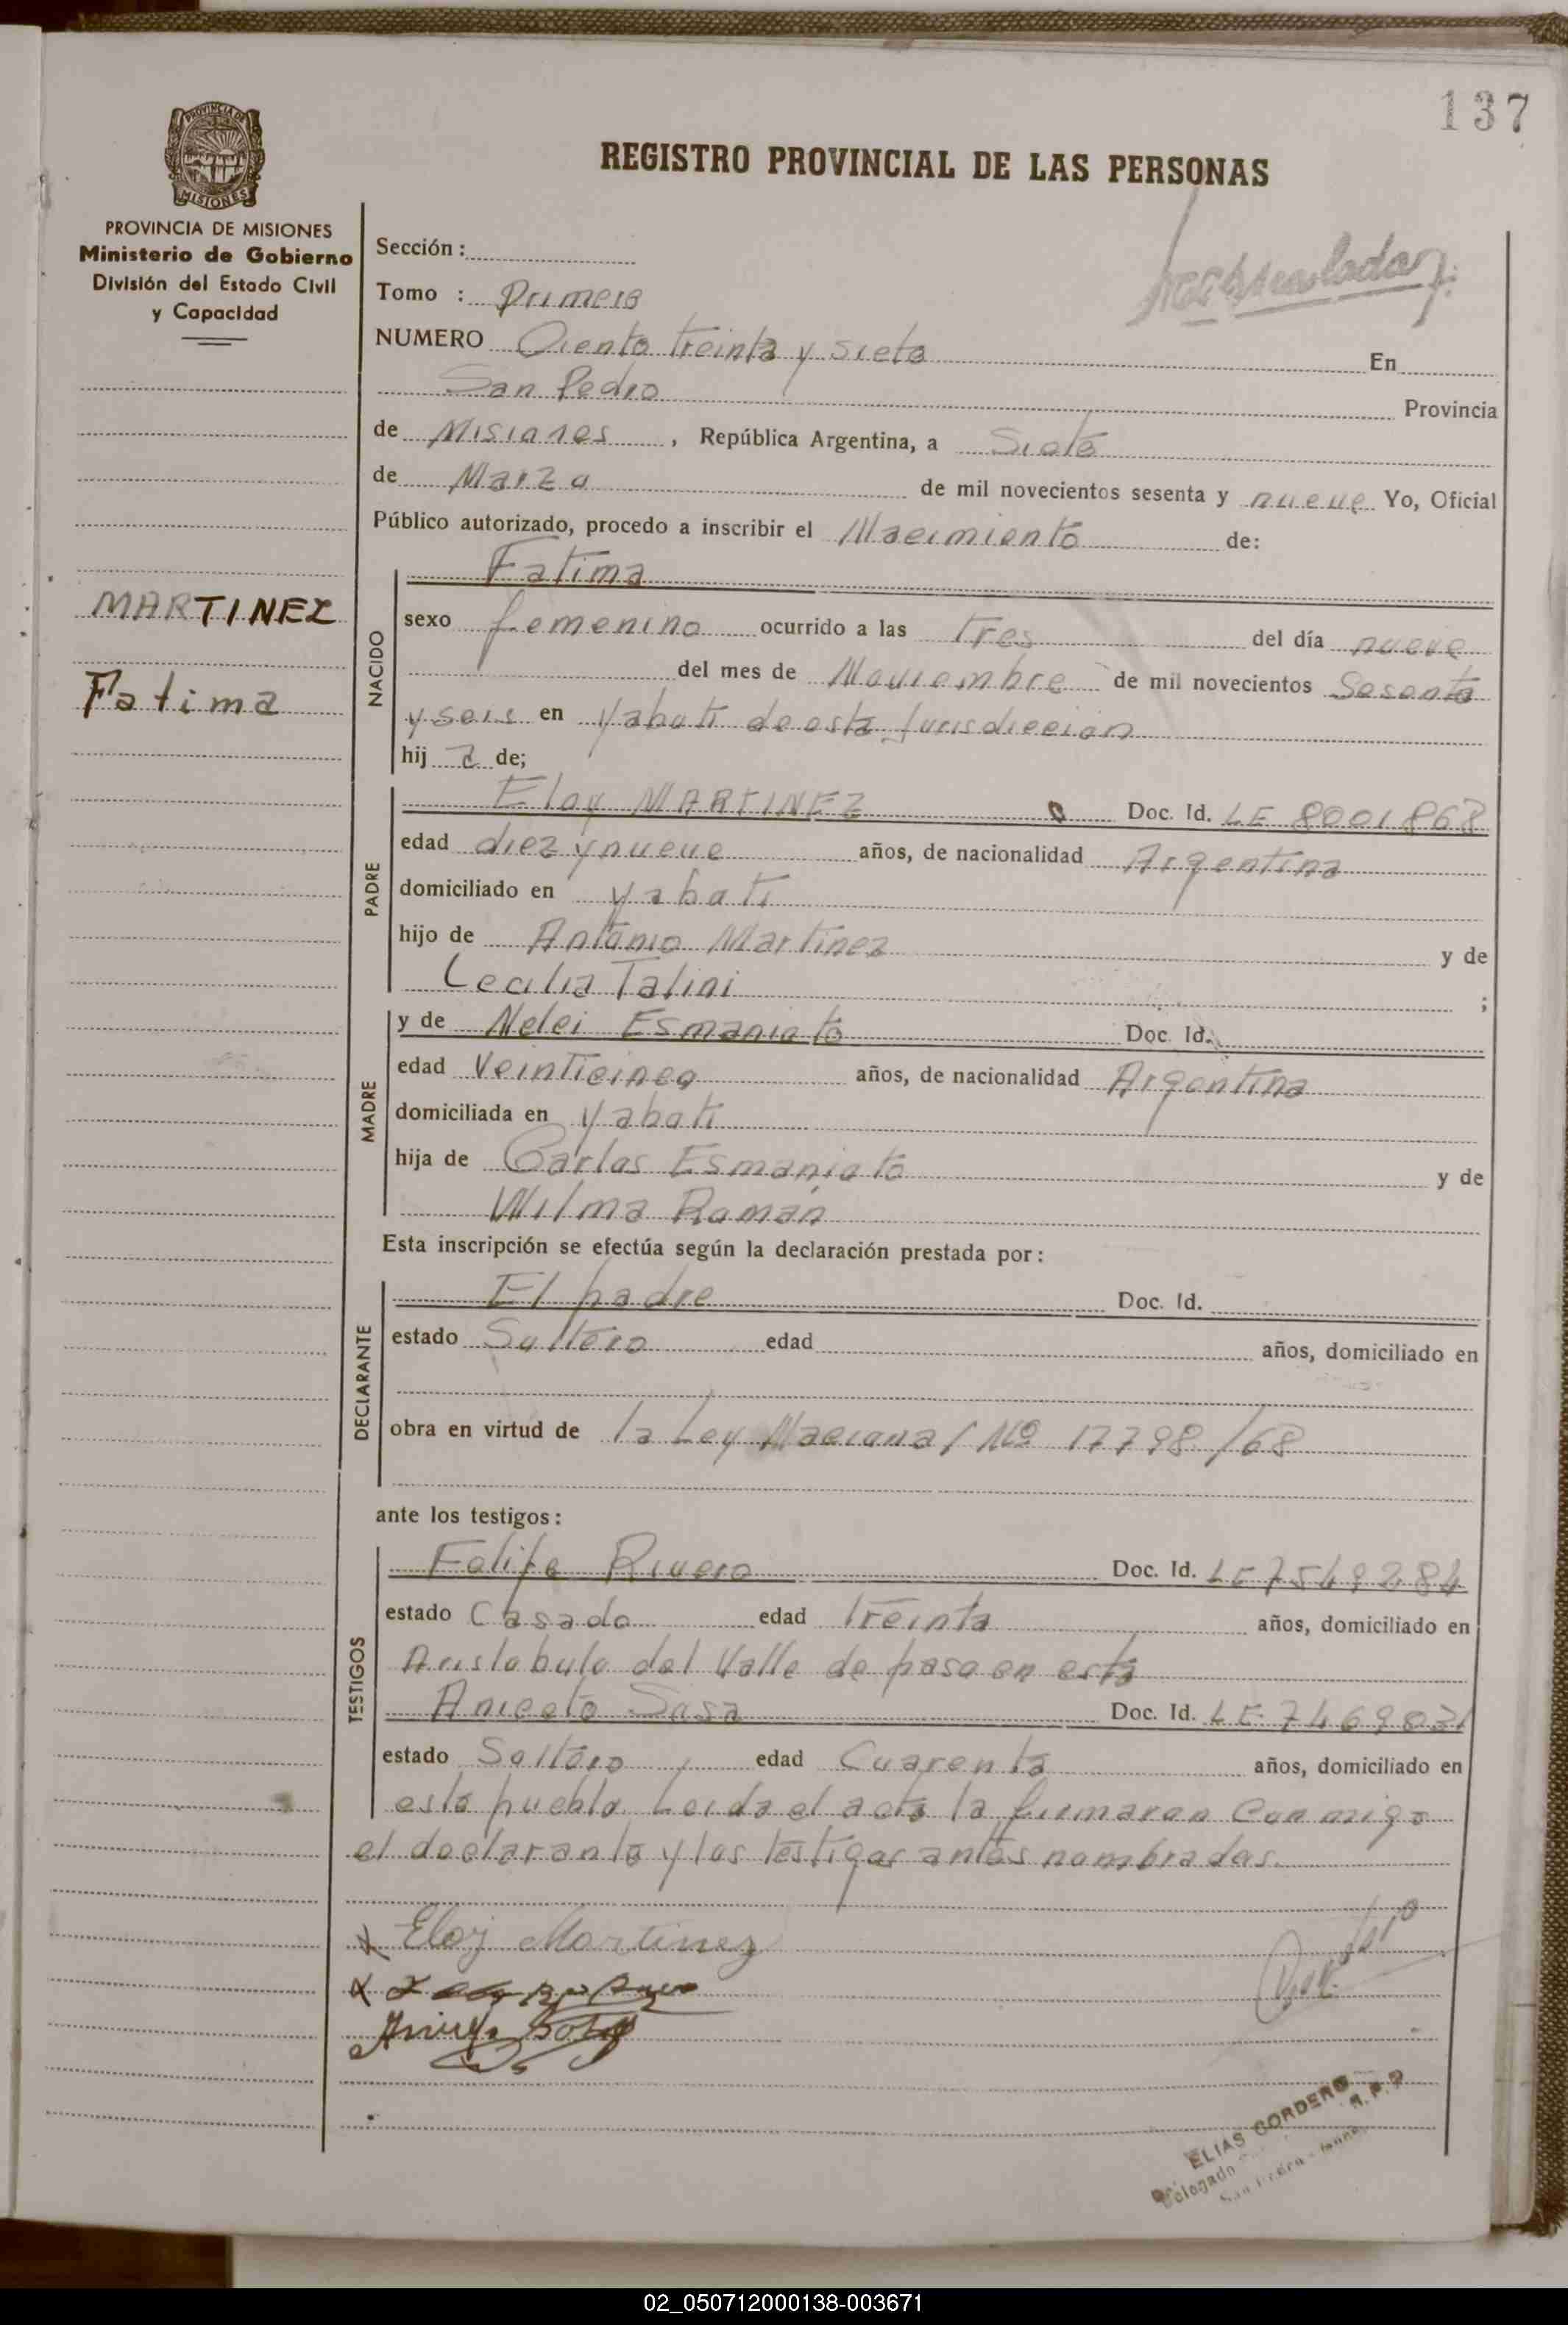 137
PROVINCIA DE
MISIONES
REGISTRO PROVINCIAL DE LAS PERSONAS
PROVINCIA DE MISIONES
Ministerio de Gobierno
División del Estado Civil
y Capacidad
Sección:
Tomo : Primero
NUMERO Ciento treinta y siete En
San Pedro Provincia
de Misiones, República Argentina, a Siete
de Marzo de mil novecientos sesenta y nueve Yo, Oficial
Público autorizado, procedo a inscribir el Nacimiento de:
MARTINEZ
Fatima
NACIDO
Fatima
sexo femenino ocurrido a las tres del día nueve
del mes de Noviembre de mil novecientos Sesenta
y seis en Yaboti de esta Jurisdiccion
hij a de;
PADRE
Eloy MARTINEZ Doc. Id. LE 8001868
edad diez y nueve años, de nacionalidad Argentina
domiciliado en Yaboti
hijo de Antonio Martinez y de
Cecilia Talini ;
MADRE
y de Nelci Esmanioto Doc. Id.
edad Veinticinco años, de nacionalidad Argentina
domiciliada en Yaboti
hija de Carlos Esmanioto y de
Wilma Román
Esta inscripción se efectúa según la declaración prestada por:
DECLARANTE
El padre Doc. Id.
estado Soltero edad años, domiciliado en
obra en virtud de la Ley Nacional Nº 17798/68
ante los testigos:
TESTIGOS
Felipe Rivero Doc. Id. LE 7549284
estado Casado edad treinta años, domiciliado en
Aristobulo del Valle de paso en esta
Aniceto Sosa Doc. Id. LE 7469031
estado Soltero edad Cuarenta años, domiciliado en
este pueblo. Leida el acta la firmaron con migo
el declarante y los testigos antes nombrados.
Eloy Martinez
ELIAS CORDERO
Delegado R.P.P
02_050712000138-003671